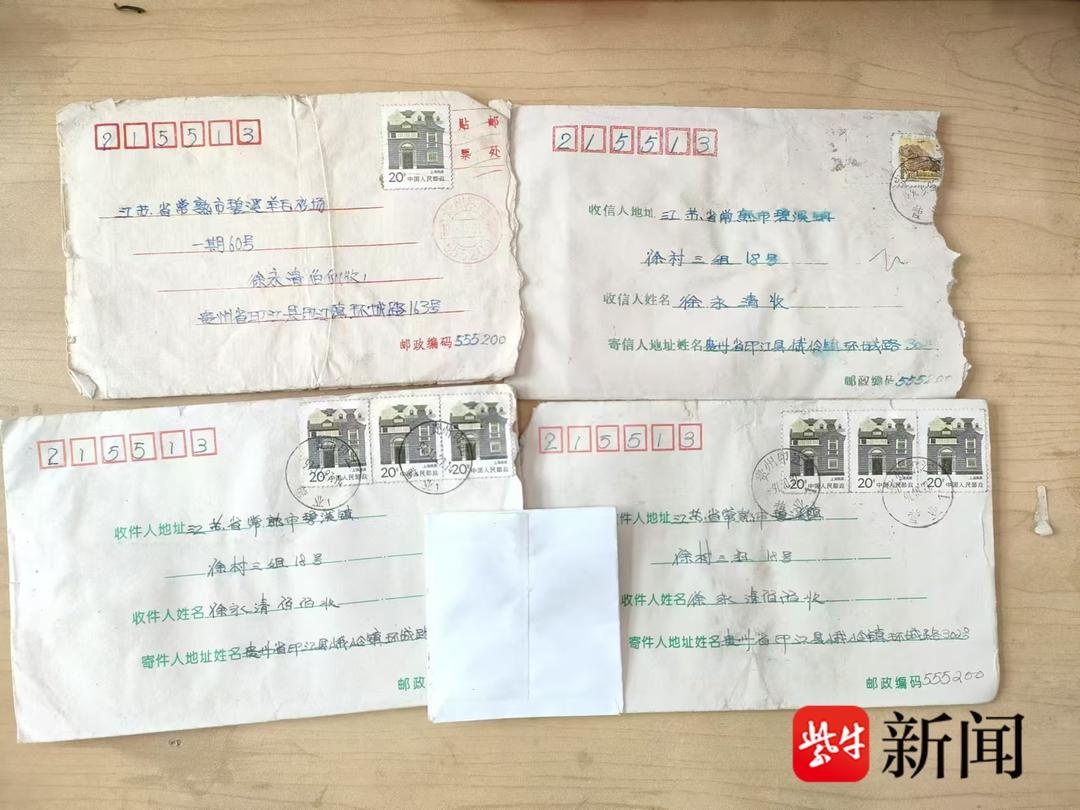 215513
20分
上海民居
中国人民邮政
贴 邮
票 处
江苏省常熟市碧溪
一期60号
徐永清伯伯收
贵州省印江县印江镇环城路163号
邮政编码555200
215513
收信人地址 江苏省常熟市碧溪镇
徐村三组 18号
收信人姓名 徐永清收
寄信人地址姓名 贵州省印江县峨岭镇环城路302
邮政编码555200
215513
20分
20分
20分
上海民居
中国人民邮政
收件人地址 江苏省常熟市碧溪镇
徐村三组 18号
收件人姓名 徐永清伯伯收
寄件人地址姓名 贵州省印江县峨岭镇环城路
邮政编码
215513
20分
20分
20分
上海民居
中国人民邮政
收件人地址 江苏省常熟市碧溪镇
徐村三组 18号
收件人姓名 徐永清伯伯收
寄件人地址姓名 贵州省印江县峨岭镇环城路302号
邮政编码555200
紫牛新闻